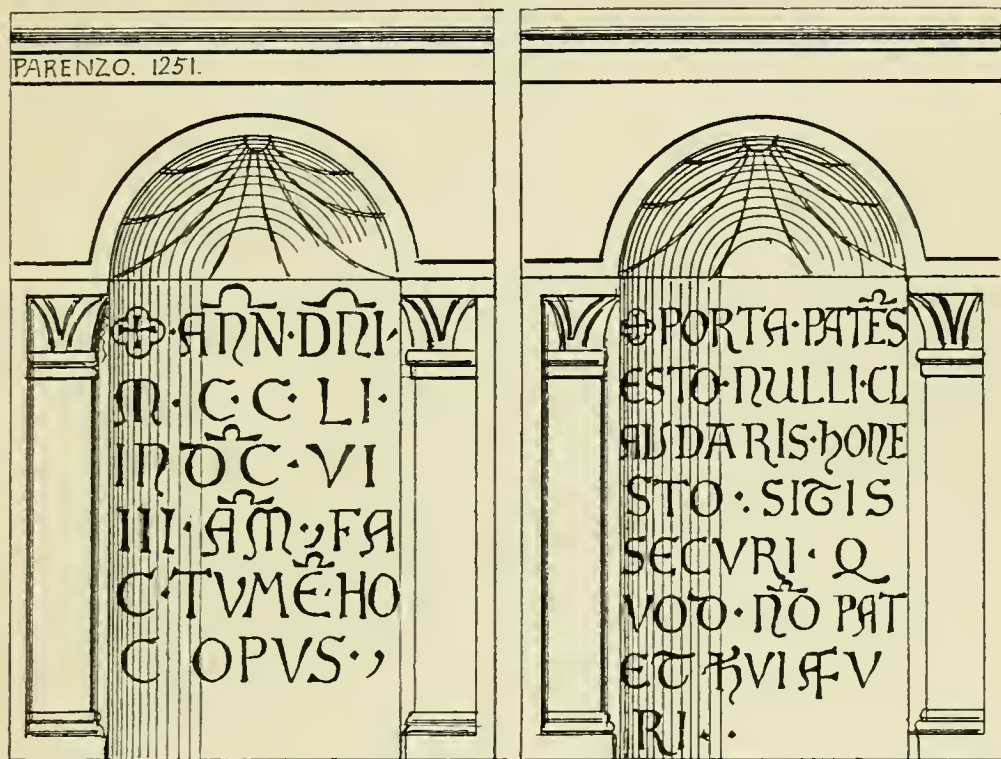 PARENZO. 1251.
·ANN·DNI·
M·C·C·LI·
INDC·VI
III·AM·,FA
C·TVME·HO
C OPVS·,
PORTA·PATES
ESTO·NULLI·CL
AUDARIS·HONE
STO·.SITIS
SECVRI·Q
VOD·NO PAT
ET HVI FV
RI··